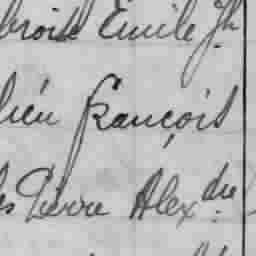 broise Emile Jh
lien François
es Pierre Alexdre